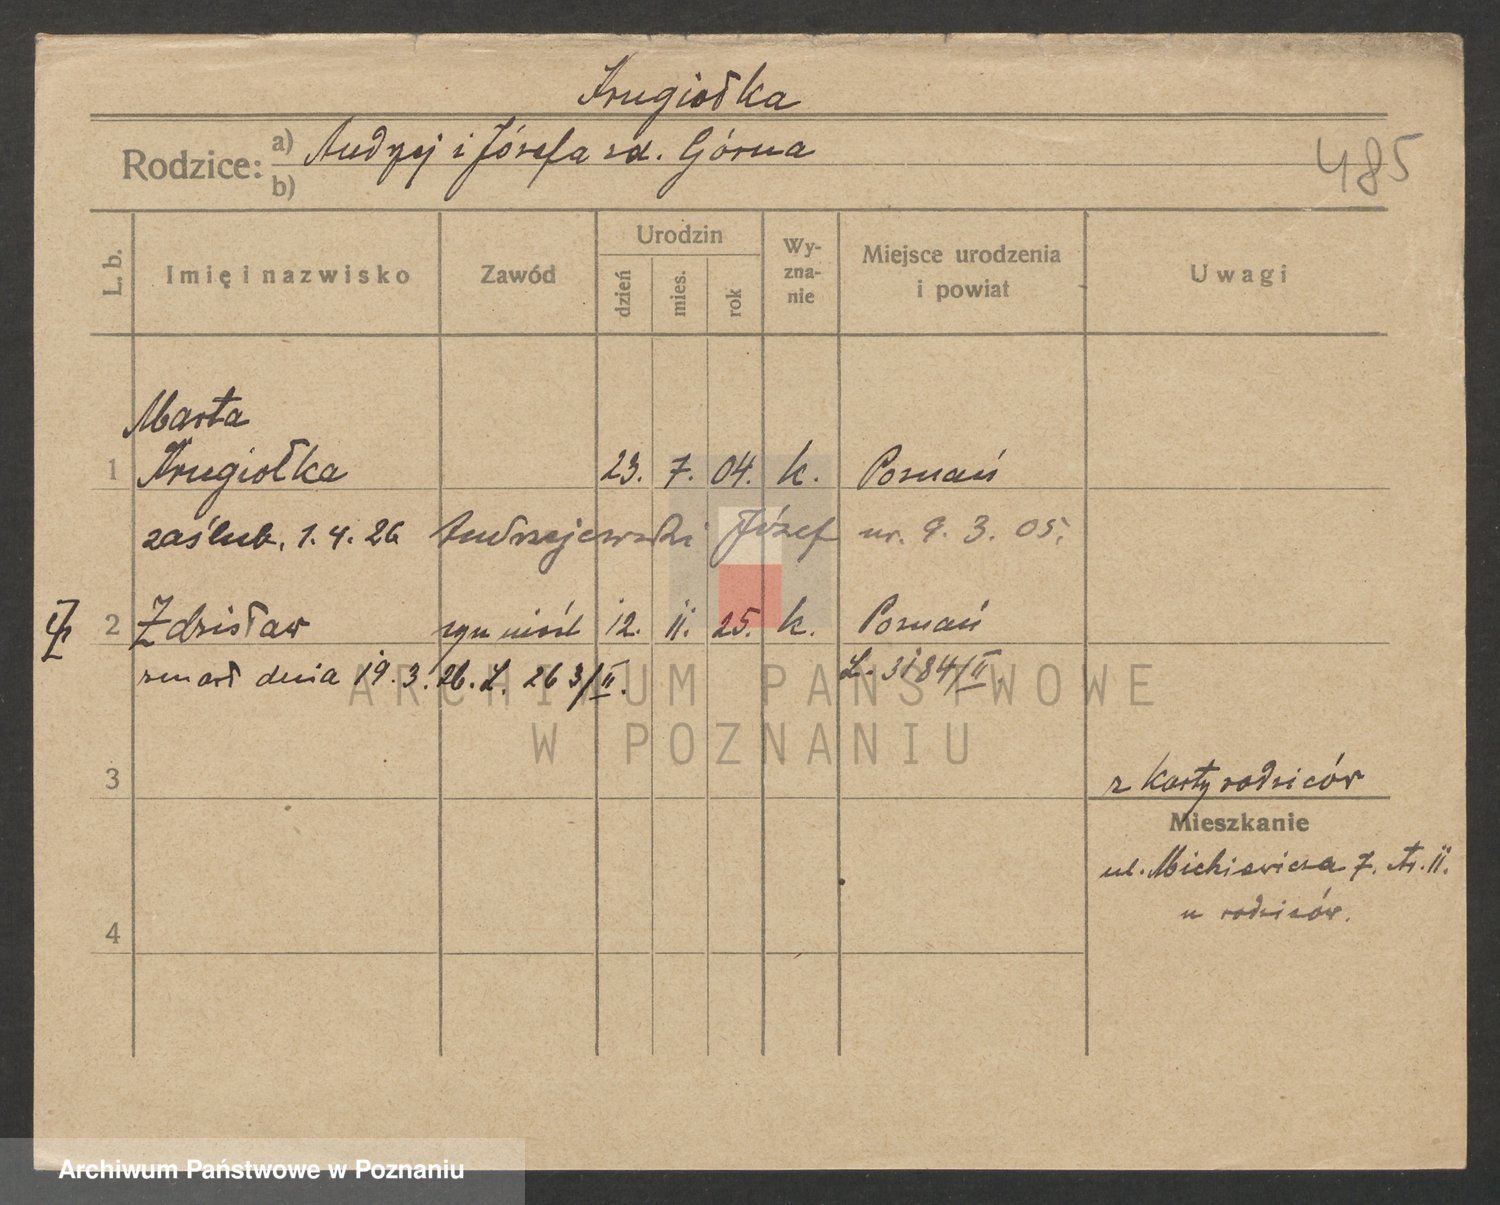 Krugiołka
Rodzice: a) Andrzej i Józefa zd. Górna
b)
485
L. b.
Imię i nazwisko
Zawód
Urodzin
dzień
mies.
rok
Wy-
zna-
nie
Miejsce urodzenia
i powiat
Uwagi
Marta
1 Krugiołka 23. 7. 04. k. Poznań
zaślub. 1. 4. 26 Andrzejewski Józef ur. 9. 3. 05.
2 Zdzisław syn nieśl 12. 11. 25. k. Poznań
zmarł dnia 19. 3. 26. L. 263/II. L. 3184/II.
ARCHIWUM PAŃSTWOWE
W POZNANIU
3
z karty rodziców
Mieszkanie
ul. Mickiewicza 7. tr. II.
u rodziców.
4
Archiwum Państwowe w Poznaniu